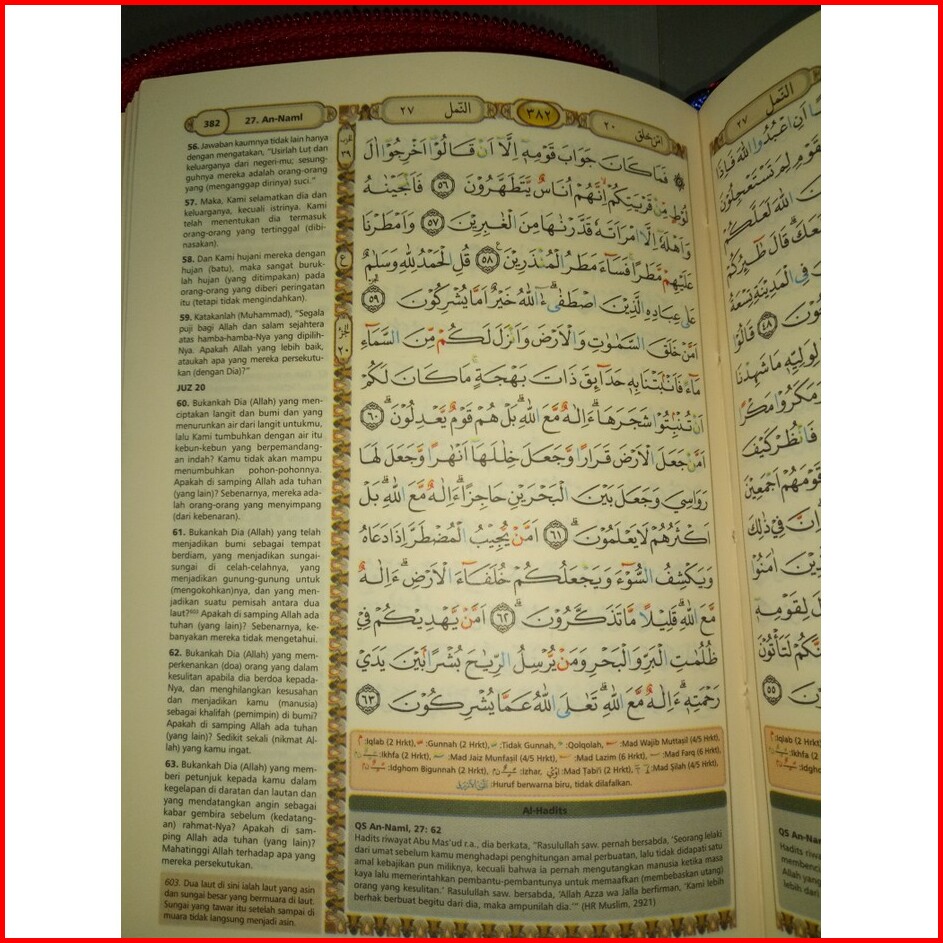 382
27. An-Naml
٢٧
النمل
٣٨٢
٢٠
امن خلق
56. Jawaban kaumnya tidak lain hanya
dengan mengatakan, "Usirlah Lut dan
keluarganya dari negeri-mu; sesung-
guhnya mereka adalah orang-orang
yang (menganggap dirinya) suci."
57. Maka, Kami selamatkan dia dan
keluarganya, kecuali istrinya. Kami
telah menentukan dia termasuk
orang-orang yang tertinggal (dibi-
nasakan).
58. Dan Kami hujani mereka dengan
hujan (batu), maka sangat buruk-
lah hujan (yang ditimpakan) pada
orang-orang yang diberi peringatan
itu (tetapi tidak mengindahkan).
59. Katakanlah (Muhammad), "Segala
puji bagi Allah dan salam sejahtera
atas hamba-hamba-Nya yang dipilih-
Nya. Apakah Allah yang lebih baik,
ataukah apa yang mereka persekutu-
kan (dengan Dia)?"
JUZ 20
60. Bukankah Dia (Allah) yang men-
ciptakan langit dan bumi dan yang
menurunkan air dari langit untukmu,
lalu Kami tumbuhkan dengan air itu
kebun-kebun yang berpemandang-
an indah? Kamu tidak akan mampu
menumbuhkan pohon-pohonnya.
Apakah di samping Allah ada tuhan
(yang lain)? Sebenarnya, mereka ada-
lah orang-orang yang menyimpang
(dari kebenaran).
61. Bukankah Dia (Allah) yang telah
menjadikan bumi sebagai tempat
berdiam, yang menjadikan sungai-
sungai di celah-celahnya, yang
menjadikan gunung-gunung untuk
(mengokohkan)nya, dan yang men-
jadikan suatu pemisah antara dua
laut?603) Apakah di samping Allah ada
tuhan (yang lain)? Sebenarnya, ke-
banyakan mereka tidak mengetahui.
62. Bukankah Dia (Allah) yang mem-
perkenankan (doa) orang yang dalam
kesulitan apabila dia berdoa kepada-
Nya, dan menghilangkan kesusahan
dan menjadikan kamu (manusia)
sebagai khalifah (pemimpin) di bumi?
Apakah di samping Allah ada tuhan
(yang lain)? Sedikit sekali (nikmat Al-
lah) yang kamu ingat.
63. Bukankah Dia (Allah) yang mem-
beri petunjuk kepada kamu dalam
kegelapan di daratan dan lautan dan
yang mendatangkan angin sebagai
kabar gembira sebelum (kedatang-
an) rahmat-Nya? Apakah di sam-
ping Allah ada tuhan (yang lain)?
Mahatinggi Allah terhadap apa yang
mereka persekutukan.
603. Dua laut di sini ialah laut yang asin
dan sungai besar yang bermuara di laut.
Sungai yang tawar itu setelah sampai di
muara tidak langsung menjadi asin.
فَمَا كَانَ جَوَابَ قَوْمِهٖٓ اِلَّآ اَنْ قَالُوْٓا اَخْرِجُوْٓا اٰلَ
لُوْطٍ مِّنْ قَرْيَتِكُمْ اِنَّهُمْ اُنَاسٌ يَّتَطَهَّرُوْنَ ٥٦ فَاَنْجَيْنٰهُ
وَاَهْلَهٗٓ اِلَّا امْرَاَتَهٗ قَدَّرْنٰهَا مِنَ الْغٰبِرِيْنَ ٥٧ وَاَمْطَرْنَا
عَلَيْهِمْ مَّطَرًاۚ فَسَاۤءَ مَطَرُ الْمُنْذَرِيْنَ ٥٨ قُلِ الْحَمْدُ لِلّٰهِ وَسَلٰمٌ
عَلٰى عِبَادِهِ الَّذِيْنَ اصْطَفٰىۗ ءٰۤاللّٰهُ خَيْرٌ اَمَّا يُشْرِكُوْنَ ٥٩
اَمَّنْ خَلَقَ السَّمٰوٰتِ وَالْاَرْضَ وَاَنْزَلَ لَكُمْ مِّنَ السَّمَاۤءِ
مَاۤءً فَاَنْۢبَتْنَا بِهٖ حَدَاۤىِٕقَ ذَاتَ بَهْجَةٍۚ مَا كَانَ لَكُمْ
اَنْ تُنْۢبِتُوْا شَجَرَهَاۗ ءَاِلٰهٌ مَّعَ اللّٰهِۗ بَلْ هُمْ قَوْمٌ يَّعْدِلُوْنَ ٦٠
اَمَّنْ جَعَلَ الْاَرْضَ قَرَارًا وَّجَعَلَ خِلٰلَهَآ اَنْهٰرًا وَّجَعَلَ لَهَا
رَوَاسِيَ وَجَعَلَ بَيْنَ الْبَحْرَيْنِ حَاجِزًاۗ ءَاِلٰهٌ مَّعَ اللّٰهِۗ بَلْ
اَكْثَرُهُمْ لَا يَعْلَمُوْنَ ٦١ اَمَّنْ يُّجِيْبُ الْمُضْطَرَّ اِذَا دَعَاهُ
وَيَكْشِفُ السُّوْۤءَ وَيَجْعَلُكُمْ خُلَفَاۤءَ الْاَرْضِۗ ءَاِلٰهٌ
مَّعَ اللّٰهِۗ قَلِيْلًا مَّا تَذَكَّرُوْنَ ٦٢ اَمَّنْ يَّهْدِيْكُمْ فِيْ
ظُلُمٰتِ الْبَرِّ وَالْبَحْرِ وَمَنْ يُّرْسِلُ الرِّيٰحَ بُشْرًاۢ بَيْنَ يَدَيْ
رَحْمَتِهٖۗ ءَاِلٰهٌ مَّعَ اللّٰهِۗ تَعٰلَى اللّٰهُ عَمَّا يُشْرِكُوْنَ ٦٣
:Iqlab (2 Hrkt), :Gunnah (2 Hrkt), :Tidak Gunnah, :Qolqolah, :Mad Wajib Muttaṣil (4/5 Hrkt),
:Ikhfa (2 Hrkt), :Mad Jaiz Munfaṣil (4/5 Hrkt), :Mad Lazim (6 Hrkt), :Mad Farq (6 Hrkt),
:Idghom Bigunnah (2 Hrkt), :Izhar, :Mad Ṭabi'i (2 Hrkt), :Mad Ṣilah (4/5 Hrkt),
:Huruf berwarna biru, tidak dilafalkan.
Al-Hadits
QS An-Naml, 27: 62
Hadits riwayat Abu Mas'ud r.a., dia berkata, "Rasulullah saw. pernah bersabda, 'Seorang lelaki
dari umat sebelum kamu menghadapi penghitungan amal perbuatan, lalu tidak didapati satu
amal kebajikan pun miliknya, kecuali bahwa ia pernah mengutangkan manusia ketika masa
kaya lalu memerintahkan pembantu-pembantunya untuk memaafkan (membebaskan utang)
orang yang kesulitan.' Rasulullah saw. bersabda, 'Allah Azza wa Jalla berfirman, 'Kami lebih
berhak berbuat begitu dari dia, maka ampunilah dia.'" (HR Muslim, 2921)
٢٧
النمل